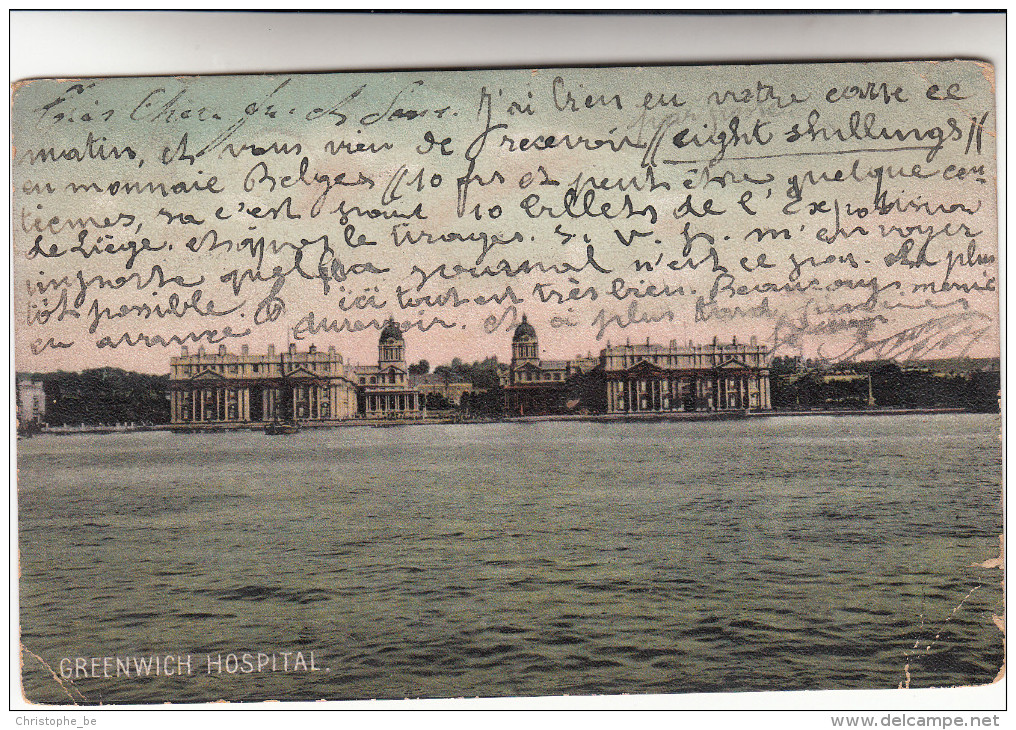 Très Chers frère et Sœur. J'ai bien eu votre carte ce
matin, et vous vien de recevoir // eight shillings //
en monnaie Belges // 10 frs et peut être quelque cen-
tièmes, sa c'est pour 10 billets de l'Exposition
de Liège. et après le tirages. S. V. P. m'envoyer
importe quelque journal n'est ce pas. Le plus
tôt possible. ici tout est très bien. Beaucoup merci
en avance aurevoir. et à plus tard
GREENWICH HOSPITAL.
Christophe_be
www.delcampe.net